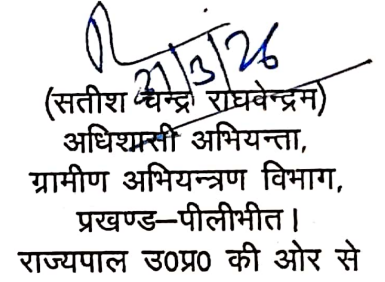 27/3/26
(सतीश चन्द्र राघवेन्द्रम)
अधिशासी अभियन्ता,
ग्रामीण अभियन्त्रण विभाग,
प्रखण्ड–पीलीभीत।
राज्यपाल उ0प्र0 की ओर से